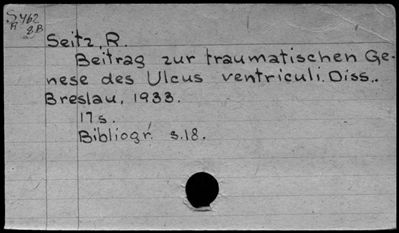 S462
2B
Seitz, R.
Beitrag zur traumatischen Ge-
nese des Ulcus ventriculi. Diss..
Breslau, 1933.
17 s.
Bibliogr. s.18.